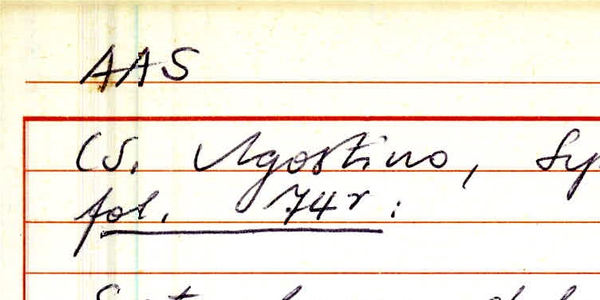 AAS
(S. Agostino, Sy
fol. 74r: